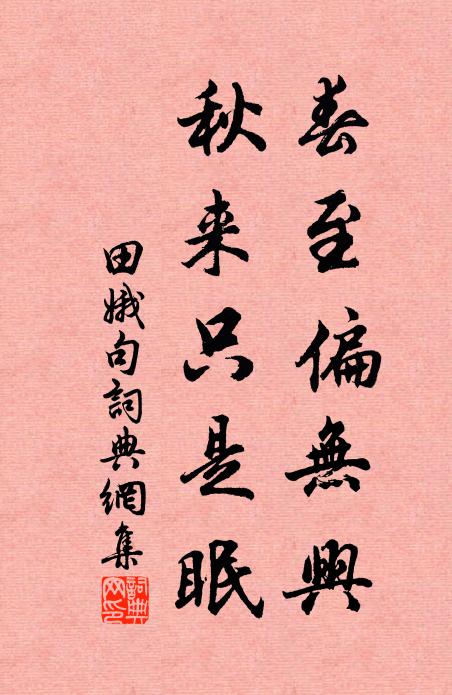 春至偏無興
秋来只是眠
田娥句詞典網集
詞典网印